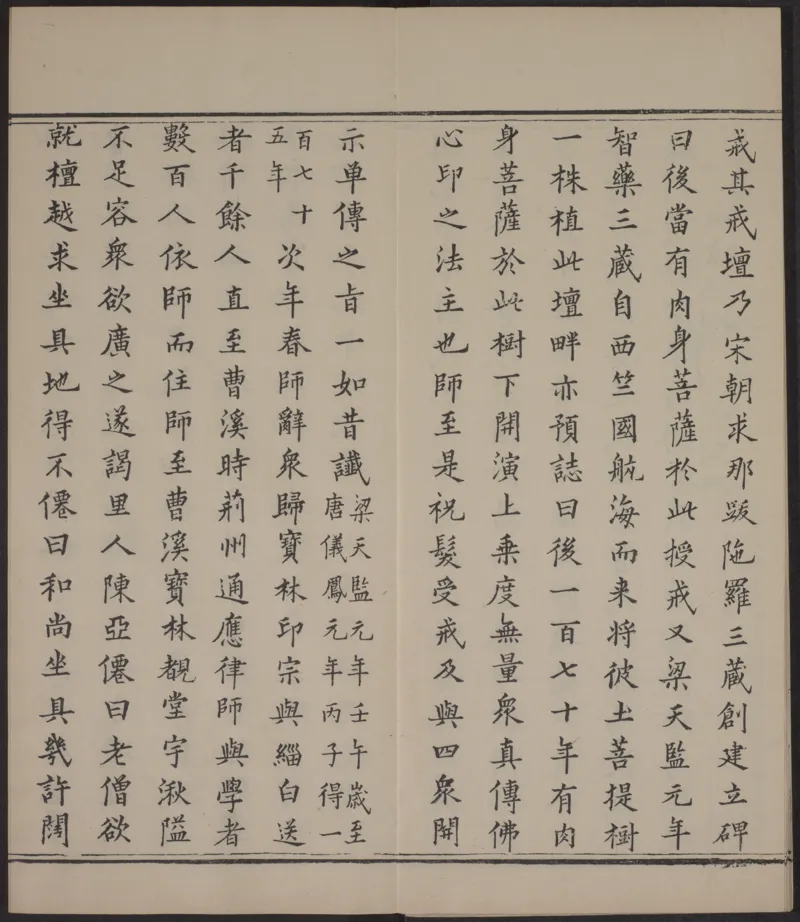 戒其戒壇乃宋朝求那跋陁羅三蔵創建立碑
曰後當有肉身菩薩扵此授戒又梁天監元年
智藥三蔵自西竺國航海而来将彼土菩提樹
一株植此壇畔亦預誌曰後一百七十年有肉
身菩薩扵此樹下開演上乗度無量衆真傳佛
心印之法主也師至是祝髮受戒及與四衆開
示单傳之旨一如昔讖
梁天監元年壬午歳至
唐儀鳳元年丙子得一
百七十
五年
次年春師辭衆歸寳林印宗與緇白送
者千餘人直至曹溪時荊州通應律師與學者
數百人依師而住師至曹溪寳林覩堂宇湫隘
不足容衆欲廣之遂謁里人陳亞僊曰老僧欲
就檀越求坐具地得不僊曰和尚坐具幾許闊